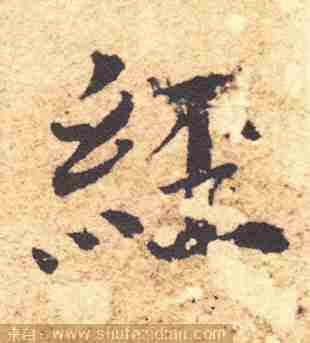 經
来自：www.shufazidian.com